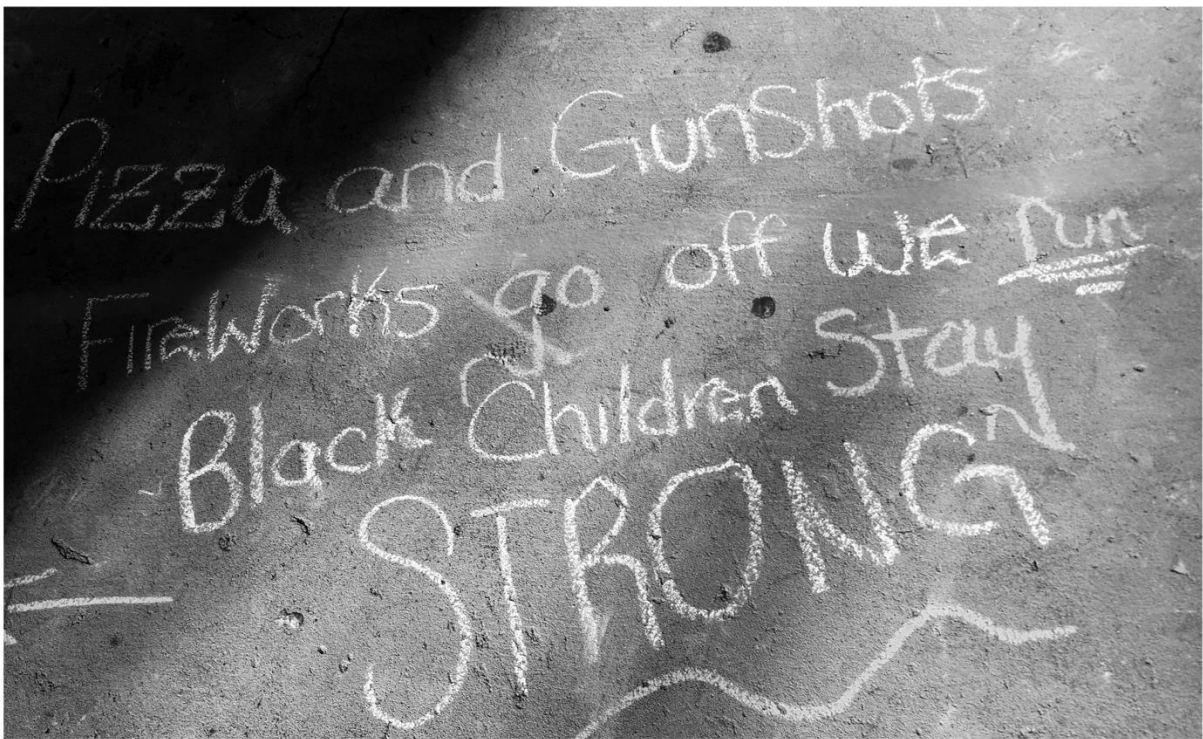 Pizza and GunShots
FireWorks go off we run
Black Children Stay
STRONG